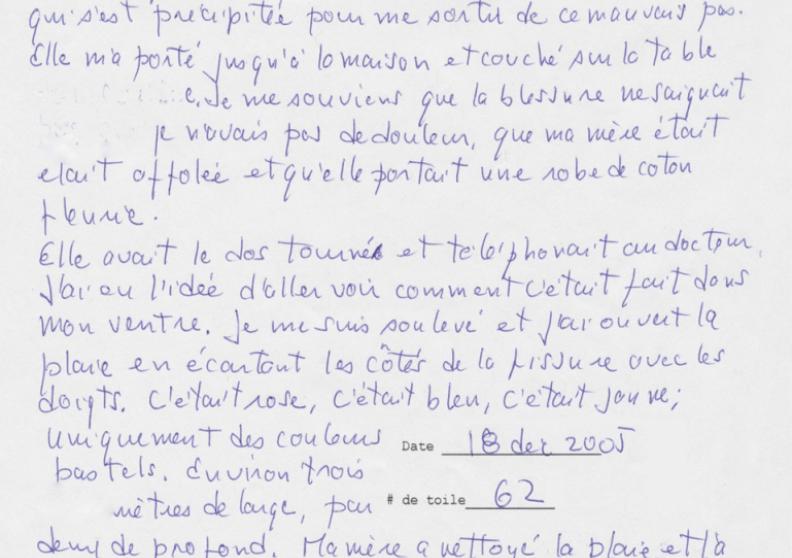 qui s'est précipitée pour me sortir de ce mauvais pas.
Elle m'a porté jusqu'à la maison et couché sur la table
Je me souviens que la blessure ne saignait
je n'avais pas de douleur, que ma mère était
etait affolée et qu'elle portait une robe de coton
fleurie.
Elle avait le dos tourné et téléphonait au docteur.
J'ai eu l'idée d'aller voir comment c'était fait dans
mon ventre. Je me suis soulevé et j'ai ouvert la
plaie en écartant les côtés de la fissure avec les
doigts. C'était rose, c'était bleu, c'était jaune;
uniquement des couleurs Date 18 dec 2005
pastels. Environ trois
mètres de large, par # de toile 62
demi de profond. Ma mère a nettoyé la plaie et l'a